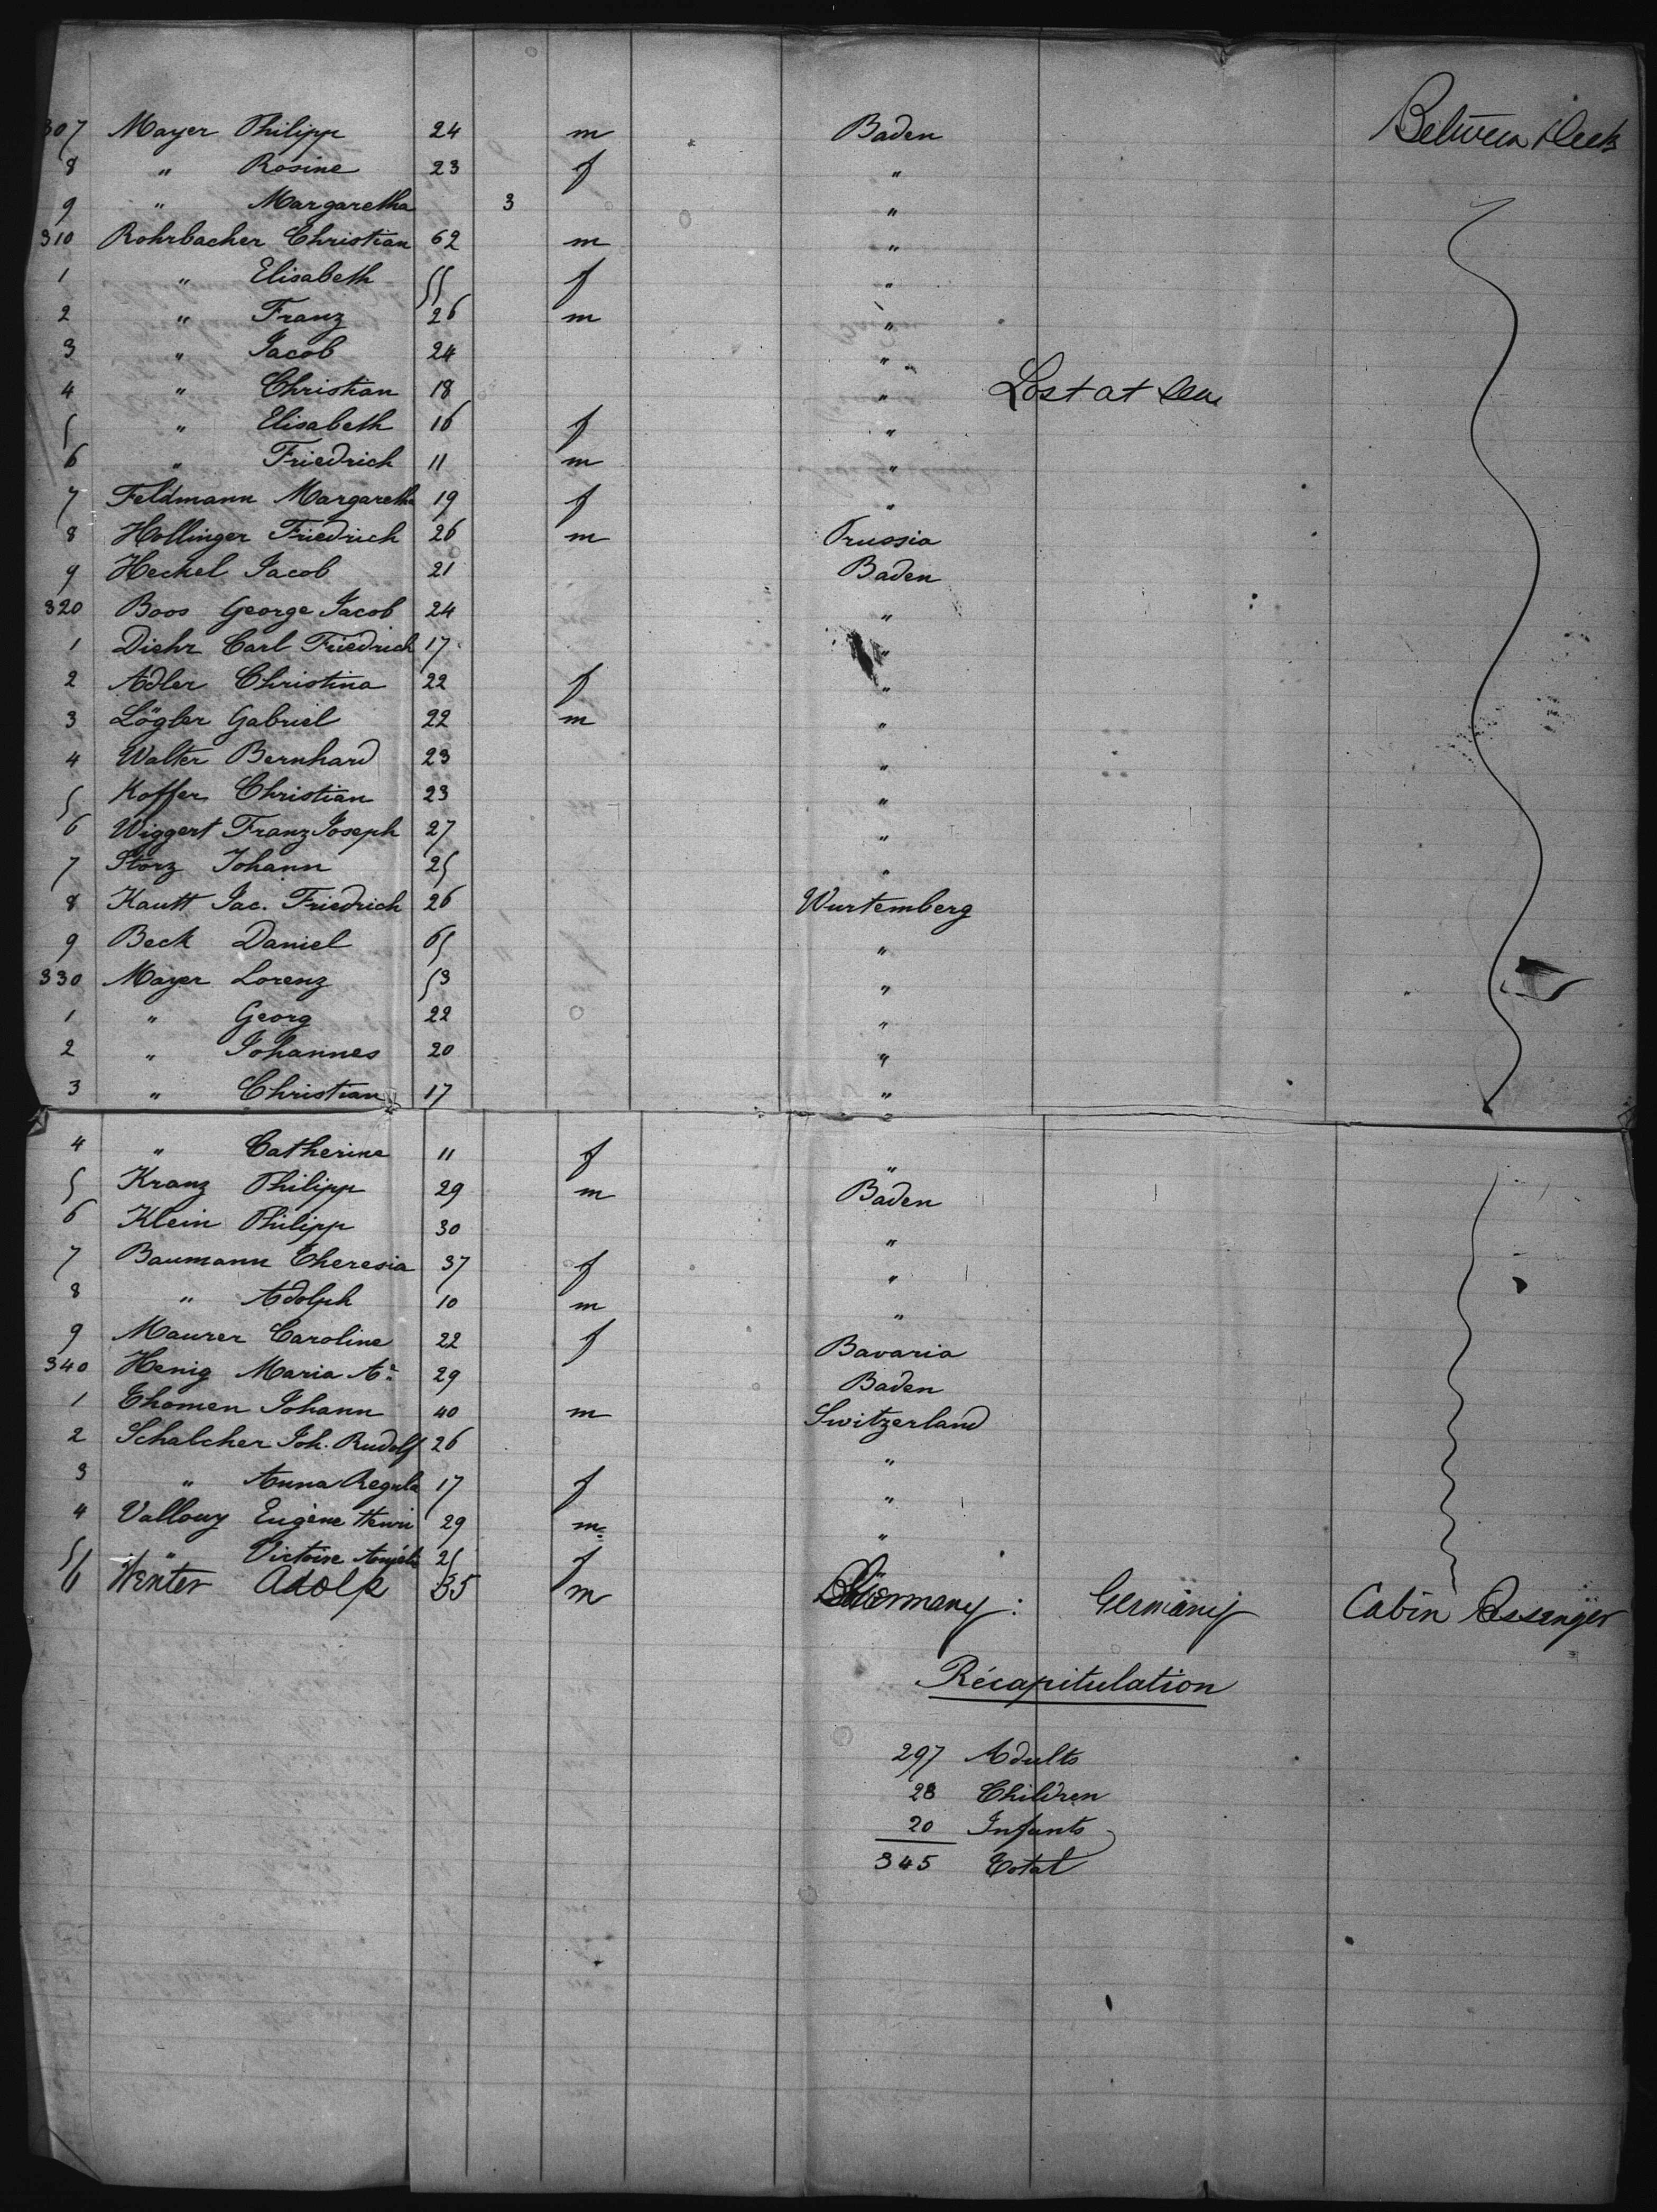 307 Mayer Philipp 24 m Baden Between Deck
8 " Rosine 23 f "
9 " Margaretha 3 "
310 Rohrbacher Christian 62 m "
1 " Elisabeth 55 f "
2 " Franz 26 m "
3 " Jacob 24 "
4 " Christian 18 " Lost at Sea
5 " Elisabeth 16 f "
6 " Friedrich 11 m "
7 Feldmann Margaretha 19 f "
8 Hollinger Friedrich 26 m Prussia
9 Heckel Jacob 21 Baden
320 Boos George Jacob 24 "
1 Diehr Carl Friedrich 17 "
2 Adler Christina 22 f "
3 Lögler Gabriel 22 m "
4 Walter Bernhard 23 "
5 Koffer Christian 23 "
6 Wiggert Franz Joseph 27 "
7 Storz Johann 25 "
8 Kautt Jac. Friedrich 26 Wurtemberg
9 Beck Daniel 65 "
330 Mayer Lorenz 53 "
1 " Georg 22 "
2 " Johannes 20 "
3 " Christian 17 "
4 " Catherine 11 f "
5 Kranz Philipp 29 m Baden
6 Klein Philipp 30 "
7 Baumann Theresia 37 f "
8 " Adolph 10 m "
9 Maurer Caroline 22 f Bavaria
340 Henig Maria Aª 29 Baden
1 Thomen Johann 40 m Switzerland
2 Schalcher Joh. Rudolf 26 "
3 " Anna Regula 17 f "
4 Vallouy Eugène Henri 29 m "
5 " Victoire 25 f
6 Wenter Adolp 35 m Germany : Germany Cabin Passenger
Récapitulation
297 Adults
28 Children
20 Infants
345 Total